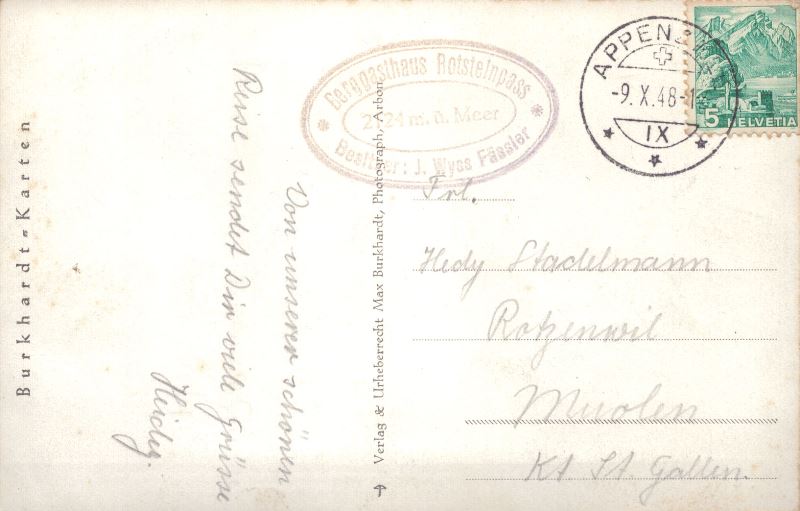 Burkhardt-Karten
Von unserer schönen
Reise sendet Dir viele Grüsse
Heidy.
Berggasthaus Rotsteinpass
2124 m. ü. Meer
Besitzer: J. Wyss Fässler
Verlag & Urheberrecht Max Burkhardt, Photograph, Arbon
APPENZELL
-9.X.48-1
IX
5 HELVETIA
Frl.
Hedy Stadelmann
Rotzenwil
Muolen
Kt St. Gallen.